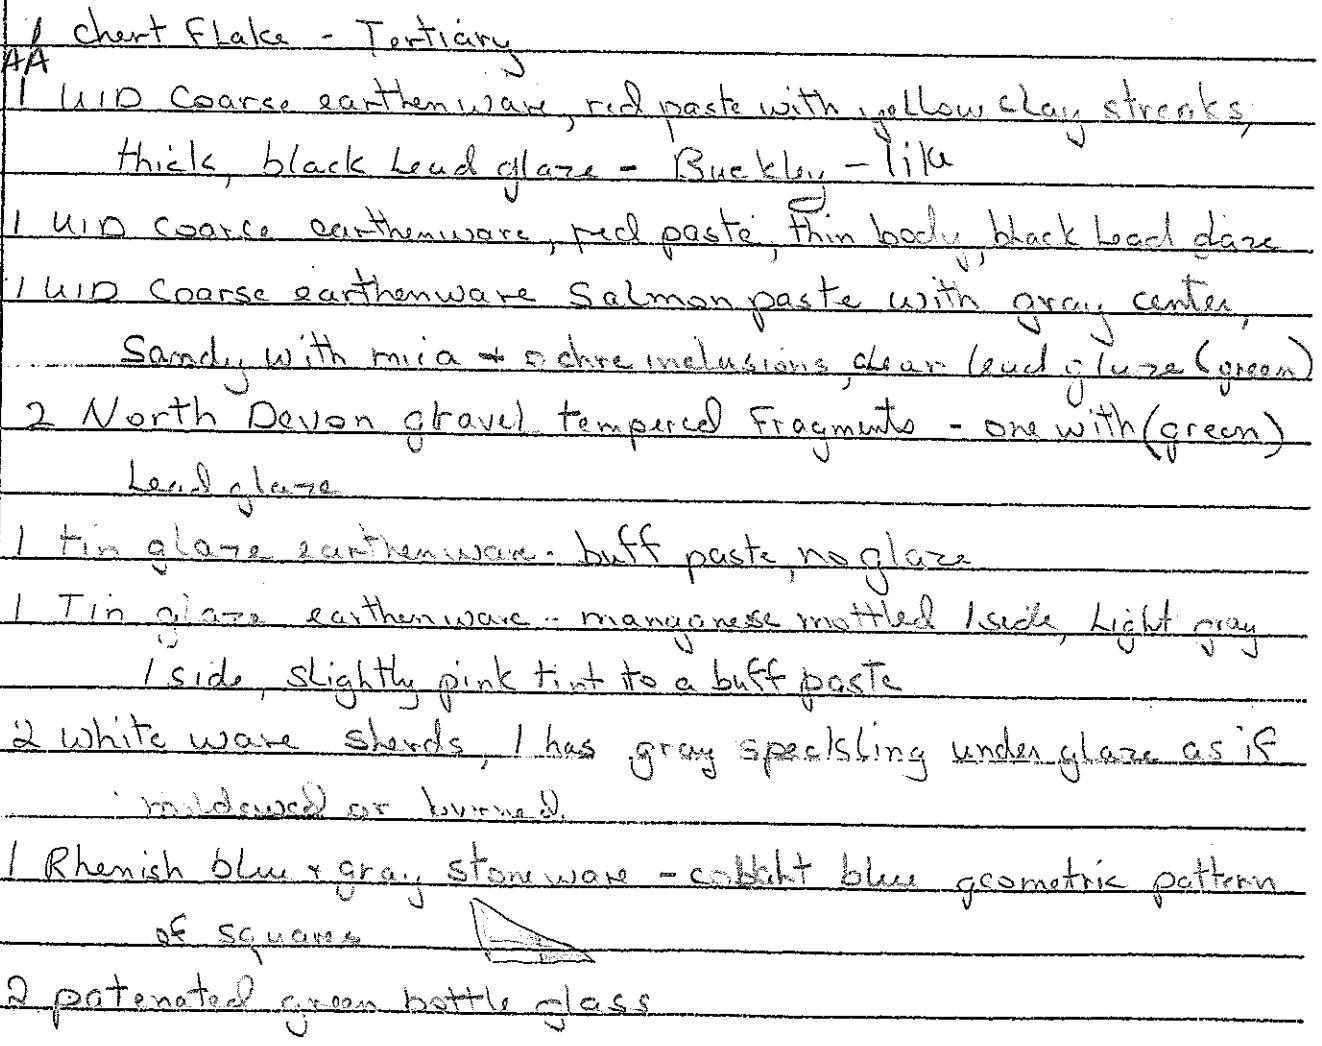 1 chert Flake - Tertiary
AA
1 UID Coarse earthenware, red paste with yellow clay streaks,
thick, black Lead glaze - Buckley - like
1 UID Coarse earthenware, red paste, thin body, black Lead glaze
1 UID Coarse earthenware Salmon paste with gray center,
Sandy with mica + ochre inclusions, clear lead glaze (green)
2 North Devon gravel tempered Fragments - one with (green)
Lead glaze
1 tin glaze earthenware - buff paste, no glaze
1 Tin glaze earthenware - manganese mottled 1 side, Light gray
1 side, slightly pink tint to a buff paste
2 White ware sherds, 1 has gray speckling under glaze as if
mildewed or burned.
1 Rhenish blue + gray stoneware - cobalt blue geometric pattern
of squares
2 patenated green bottle glass